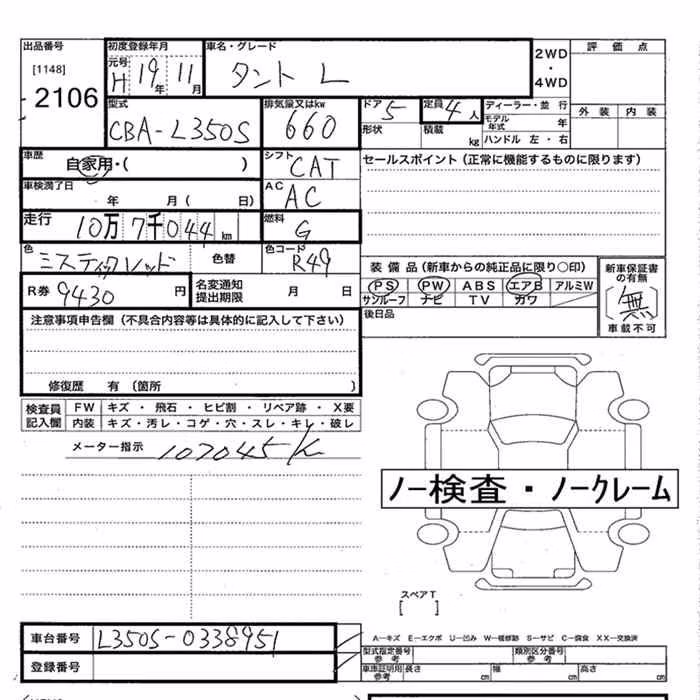 出品番号 初度登録年月 車名・グレード 2WD ・ 4WD 評価点
[1148] 元号 H 19年 11月 タント L
2106 外装 内装
型式 排気量又はkw ドア 5 定員 4人 ディーラー・並行
CBA-L350S 660 形状 積載 kg モデル年式 年
ハンドル 左・右
車歴 自家用・( ) シフト CAT セールスポイント (正常に機能するものに限ります)
車検満了日 年 月( 日) AC AC
走行 10万 7千044km 燃料 G
色 ミスティックレッド 色替 色コード R49
装備品 (新車からの純正品に限り○印) 新車保証書の有無
R券 9430円 名変通知提出期限 月 日 PS PW ABS エアB アルミW [無]
サンルーフ ナビ TV カワ 車載不可
注意事項申告欄 (不具合内容等は具体的に記入して下さい) 後日品
修復歴 有 (箇所 )
検査員記入欄 FW キズ・飛石・ヒビ割・リペア跡・X要
内装 キズ・汚レ・コゲ・穴・スレ・キレ・破レ
メーター指示 107045K
ノー検査・ノークレーム
スペアT
[ ]
車台番号 L350S-0338951 A-キズ E-エクボ U-凹み W-補修跡 S-サビ C-腐食 XX-交換済
型式指定番号 参考 類別区分番号 参考
登録番号 車庫証明用 参考 長さ cm 幅 cm 高さ cm